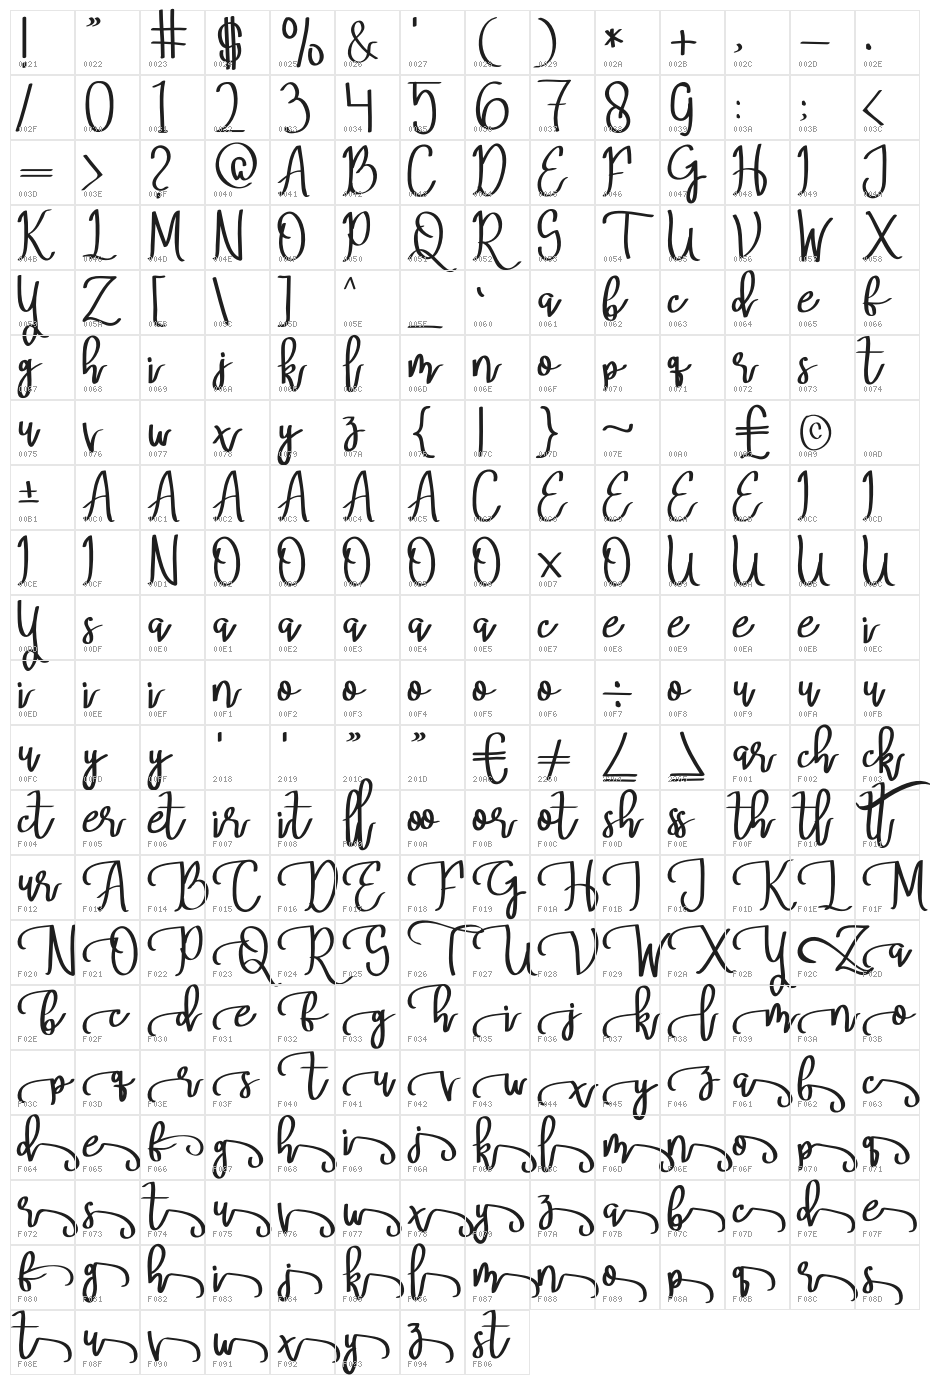 ! " # $ % & ' ( ) * + , - .
0021 0022 0023 0024 0025 0026 0027 0028 0029 002A 002B 002C 002D 002E
/ 0 1 2 3 4 5 6 7 8 9 : ; <
002F 0030 0031 0032 0033 0034 0035 0036 0037 0038 0039 003A 003B 003C
= > ? @ A B C D E F G H I J
003D 003E 003F 0040 0041 0042 0043 0044 0045 0046 0047 0048 0049 004A
K L M N O P Q R S T U V W X
004B 004C 004D 004E 004F 0050 0051 0052 0053 0054 0055 0056 0057 0058
Y Z [ \ ] ^ _ ` a b c d e f
0059 005A 005B 005C 005D 005E 005F 0060 0061 0062 0063 0064 0065 0066
g h i j k l m n o p q r s t
0067 0068 0069 006A 006B 006C 006D 006E 006F 0070 0071 0072 0073 0074
u v w x y z { | } ~ £ ©
0075 0076 0077 0078 0079 007A 007B 007C 007D 007E 00A0 00A3 00A9 00AD
± A A A A A A C E E E E I I
00B1 00C0 00C1 00C2 00C3 00C4 00C5 00C7 00C8 00C9 00CA 00CB 00CC 00CD
I I N O O O O O × O U U U U
00CE 00CF 00D1 00D2 00D3 00D4 00D5 00D6 00D7 00D8 00D9 00DA 00DB 00DC
Y s a a a a a a c e e e e i
00DD 00DF 00E0 00E1 00E2 00E3 00E4 00E5 00E7 00E8 00E9 00EA 00EB 00EC
i i i n o o o o o ÷ o u u u
00ED 00EE 00EF 00F1 00F2 00F3 00F4 00F5 00F6 00F7 00F8 00F9 00FA 00FB
u y y ' ' " " € ≠ ≤ ≥ ar ch ck
00FC 00FD 00FF 2018 2019 201C 201D 20AC 2260 2264 2265 F001 F002 F003
ct er et ir it ff oo or ot sh ss th tl tt
F004 F005 F006 F007 F008 F009 F00A F00B F00C F00D F00E F00F F010 F011
ur A B C D E F G H I J K L M
F012 F013 F014 F015 F016 F017 F018 F019 F01A F01B F01C F01D F01E F01F
N O P Q R S T U V W X Y Z a
F020 F021 F022 F023 F024 F025 F026 F027 F028 F029 F02A F02B F02C F02D
b c d e f g h i j k l m n o
F02E F02F F030 F031 F032 F033 F034 F035 F036 F037 F038 F039 F03A F03B
p q r s t u v w x y z a b c
F03C F03D F03E F03F F040 F041 F042 F043 F044 F045 F046 F061 F062 F063
d e f g h i j k l m n o p q
F064 F065 F066 F067 F068 F069 F06A F06B F06C F06D F06E F06F F070 F071
r s t u v w x y z a b c d e
F072 F073 F074 F075 F076 F077 F078 F079 F07A F07B F07C F07D F07E F07F
f g h i j k l m n o p q r s
F080 F081 F082 F083 F084 F085 F086 F087 F088 F089 F08A F08B F08C F08D
t u v w x y z st
F08E F08F F090 F091 F092 F093 F094 FB06